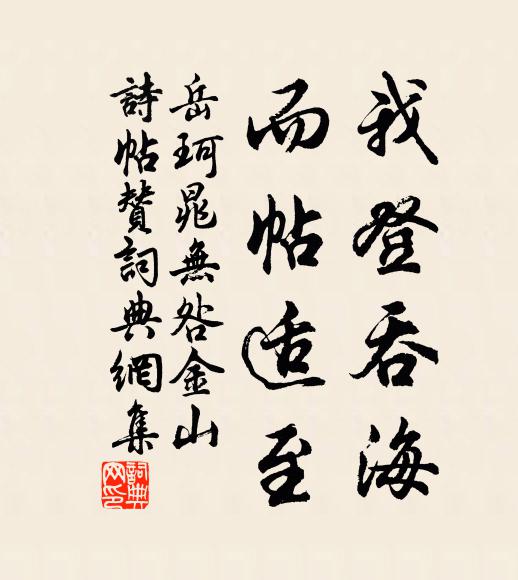 我登吞海
而帖适至
岳珂晁無咎金山
詩帖贊詞典網集
詞典网印